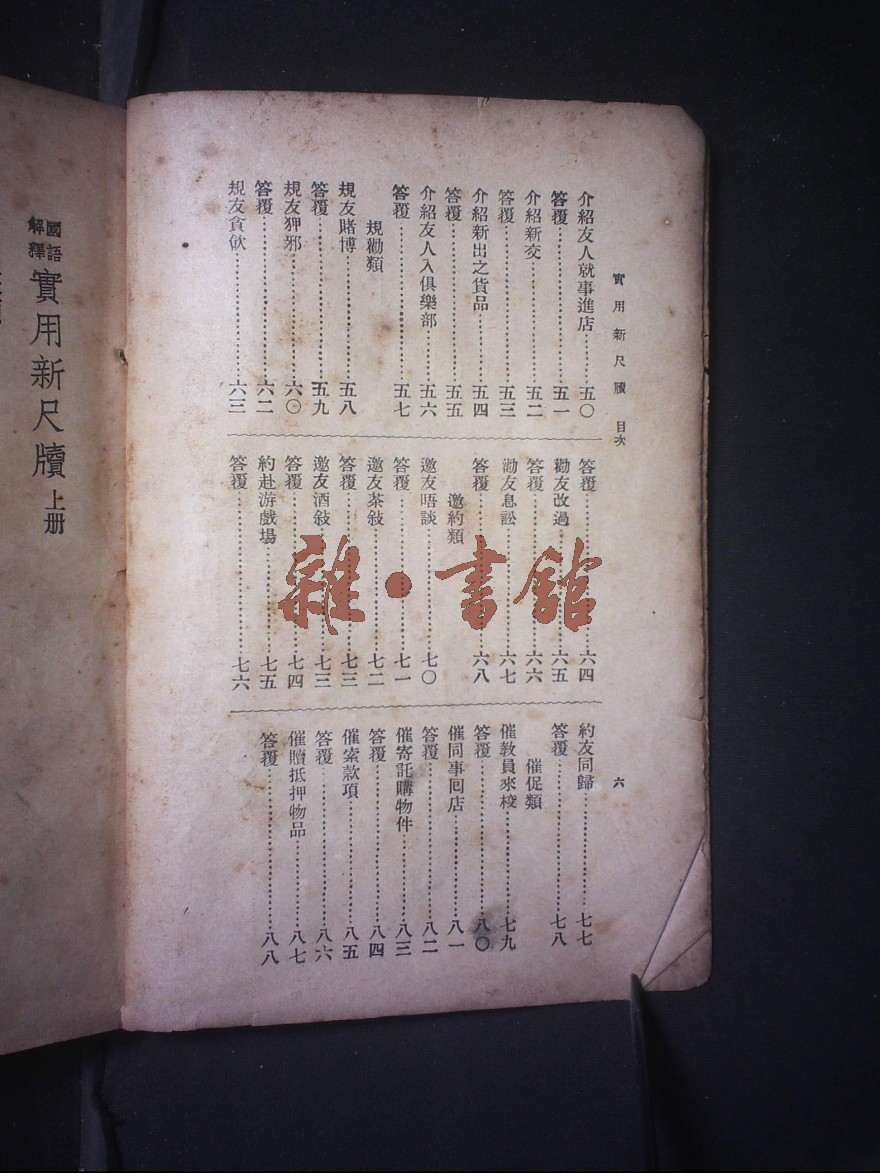 實用新尺牘 目次
六
介紹友人就事進店……五〇
答覆……五一
介紹新交……五二
答覆……五三
介紹新出之貨品……五四
答覆……五五
介紹友人入俱樂部……五六
答覆……五七
規勸類
規友賭博……五八
答覆……五九
規友狎邪……六〇
答覆……六二
規友貪飲……六三
答覆……六四
勸友改過……六五
答覆……六六
勸友息訟……六七
答覆……六八
邀約類
邀友晤談……七〇
答覆……七一
邀友茶敍……七二
答覆……七三
邀友酒敍……七三
答覆……七四
約赴游戲場……七五
答覆……七六
約友同歸……七七
答覆……七八
催促類
催教員來校……七九
答覆……八〇
催同事囘店……八一
答覆……八二
催寄託購物件……八三
答覆……八四
催索款項……八五
答覆……八六
催贖抵押物品……八七
答覆……八八
國語
解釋
實用新尺牘 上册
雜·書館